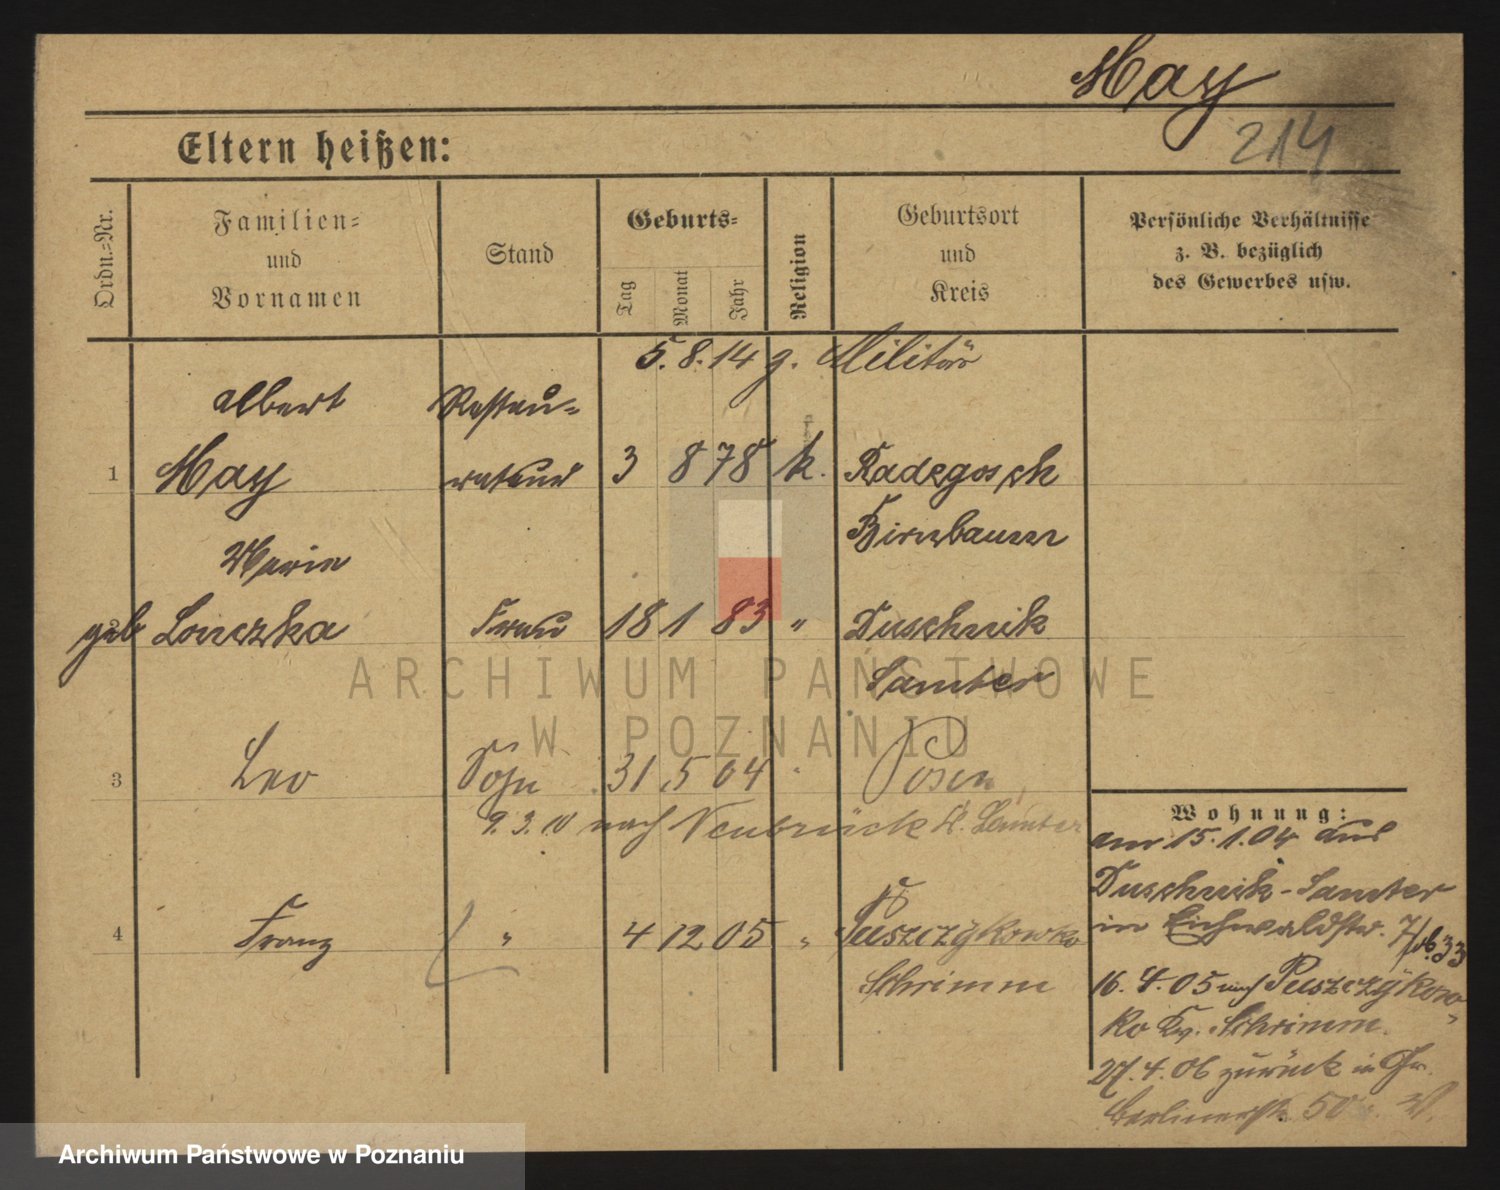 May
214
Eltern heißen:
Ordn.=Nr.
Familien=
und
Vornamen
Stand
Geburts=
Tag
Monat
Jahr
Religion
Geburtsort
und
Kreis
Persönliche Verhältnisse
z. B. bezüglich
des Gewerbes usw.
5. 8. 14 z. Militär
Albert Restau=
1 May rateur 3 8 78 k. Radzgosch
Birnbaum
Marie
geb Lonczka Frau 18 1 83 " Duschnik
Samter
3 Leo Sohn 31 5 04 " Posen
9. 3. 10 nach Neubrück K. Samter
4 Franz " 4 12 05 " Puszczykowko
Schrimm
Wohnung:
am 15. 1. 04 aus
Duschnik - Samter
in Eichwaldstr. 7/
16. 4. 05 nach Puszczykow
ko Kr. Schrimm.
27. 4. 06 zurück in Gr.
Berlinerstr. 50
ARCHIWUM PAŃSTWOWE
W POZNANIU
Archiwum Państwowe w Poznaniu